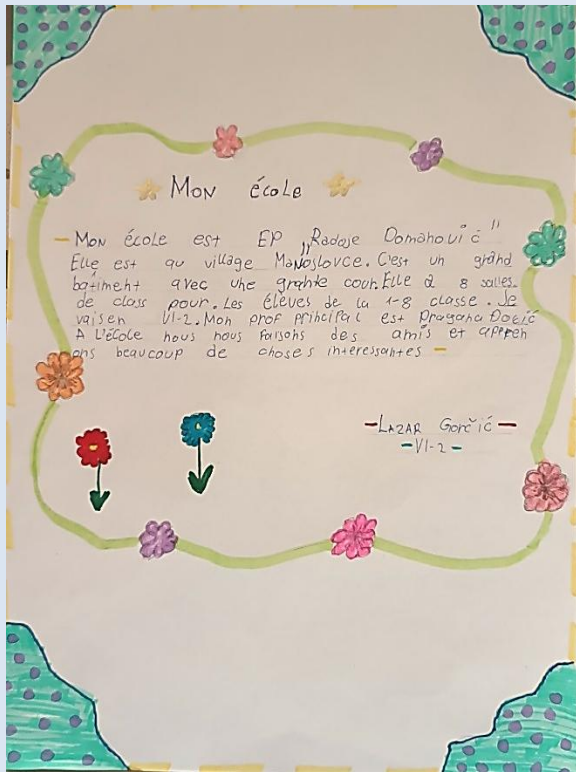 Mon école
- Mon école est EP „Radoje Domanović"
Elle est au village Manojlovce. C'est un grand
batiment avec une grahte cour. Elle a 8 salles.
de class pour. Les élèves de la 1-8 classe. Je
vaisen VI-2. Mon prof principal est Dragana Đocić
A L'école nous nous faisons des amis et appren
ons beaucoup de choses interessantes -
- Lazar Gorčić -
- VI-2 -